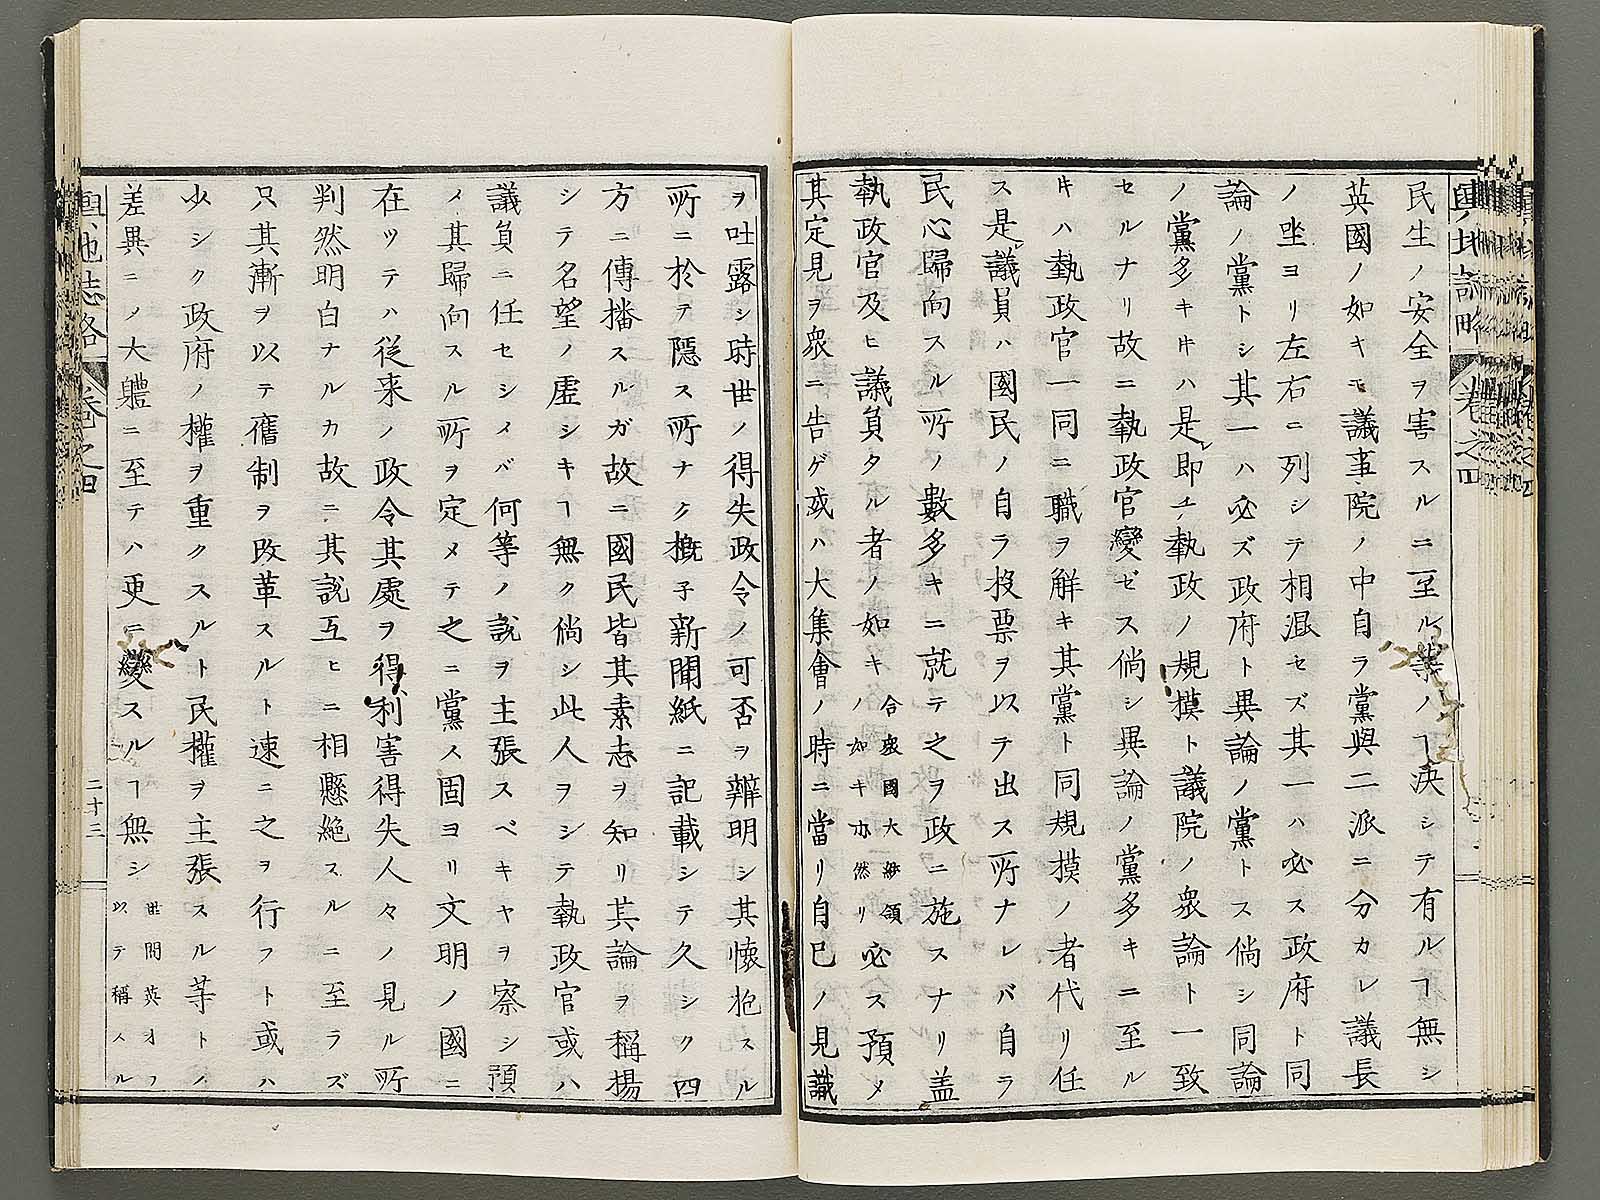 輿地誌略 卷之四
民生ノ安全ヲ害スルニ至ル等ノヿ决シテ有ルヿ無シ
英國ノ如キモ議事院ノ中自ラ黨與二派ニ分カレ議長
ノ坐ヨリ左右ニ列シテ相混セズ其一ハ必ス政府ト同
論ノ黨トシ其一ハ必ズ政府ト異論ノ黨トス倘シ同論
ノ黨多キ片ハ是レ即チ執政ノ規模ト議院ノ衆論ト一致
セルナリ故ニ執政官變ゼス倘シ異論ノ黨多キニ至ル
片ハ執政官一同ニ職ヲ解キ其黨ト同規摸ノ者代リ任
ス是レ議員ハ國民ノ自ラ投票ヲ以テ出ス所ナレバ自ラ
民心歸向スル所ノ數多キニ就テ之ヲ政ニ施スナリ盖
執政官及ヒ議員タル者ノ如キ 合衆國大統領ノ如キ亦然リ 必ス預メ
其定見ヲ衆ニ告ゲ或ハ大集會ノ時ニ當リ自己ノ見識
ヲ吐露シ時世ノ得失政令ノ可否ヲ辨明シ其懷抱スル
所ニ於テ隱ス所ナク概子新聞紙ニ記載シテ久シク四
方ニ傳播スルガ故ニ國民皆其素志ヲ知リ其論ヲ稱揚
シテ名望ノ虛シキヿ無ク倘シ此人ヲシテ執政官或ハ
議員ニ任セシメバ何等ノ說ヲ主張スベキヤヲ察シ預
メ其歸向スル所ヲ定メテ之ニ黨ス固ヨリ文明ノ國ニ
在ツテハ從来ノ政令其處ヲ得利害得失人々ノ見ル所
判然明白ナルカ故ニ其說互ヒニ相懸絶スルニ至ラズ
只其漸ヲ以テ舊制ヲ改革スルト速ニ之ヲ行フト或ハ
少シク政府ノ權ヲ重クスルト民權ヲ主張スル等トノ
差異ニノ大軆ニ至テハ更ニ變スルヿ無シ 世間英才ヲ以テ稱スル
輿地誌略 卷之四 二十三